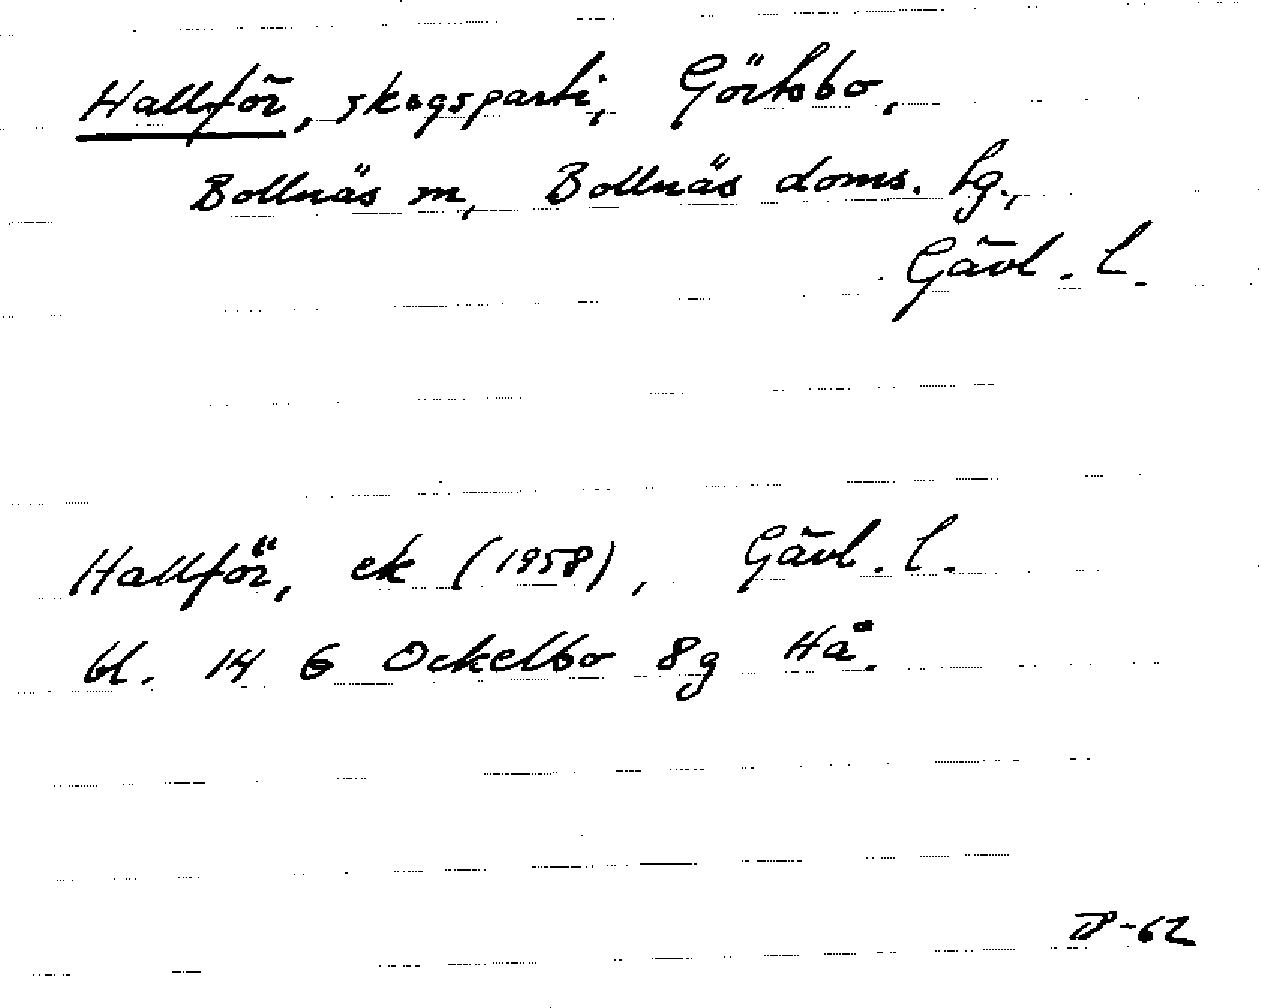 Hallför, skogsparti, Görtsbo,
Bollnäs m, Bollnäs doms. hg.,
Gävl. l.
Hallför, ek (1958), Gävl. l.
bl. 14 G Ockelbo 8g Hå.
-62